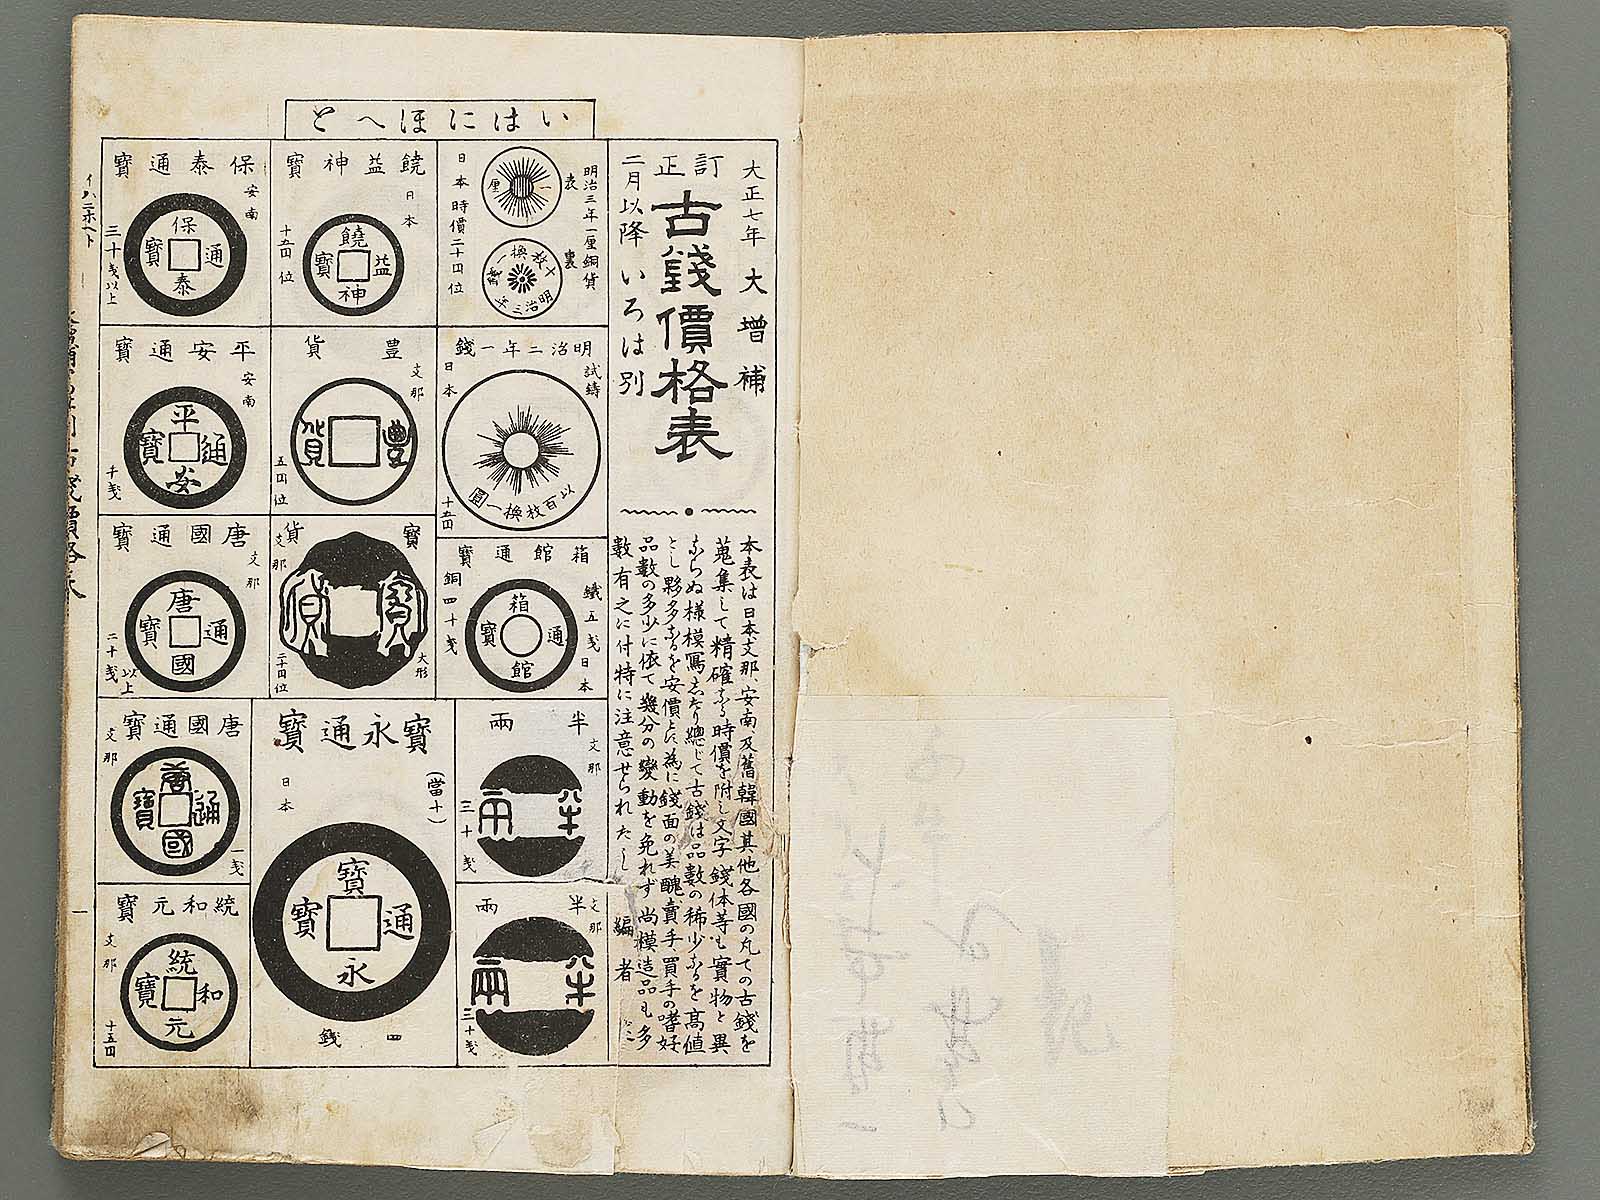 いはにほへと
大正七年 大増補
訂正
古錢價格表
二月以降 いろは別
本表は日本支那、安南、及舊韓國其他各國の凡ての古錢を
蒐集して精確なる時價を附し文字 錢体等も實物と異
ならぬ様模寫したり總じて古錢は品數の稀少なるを高値
とし夥多なるを安價とす為に錢面の美醜、賣手、買手の嗜好
品數の多少に依て幾分の變動を免れず 尚模造品も多
數有之に付特に注意せられたし
編者
明治三年一厘銅貨
表
一厘
裏
十枚換一錢
明治三年
日本 時價二十四位
明治二年一錢
試鑄
日本
以百枚換一圓
十五円
箱館通寶
鐵五戔 日本
箱館通寶
銅四十戔
半兩
支那
半兩
三十戔
半兩
支那
半兩
三十戔
饒益神寶
日本
饒益神寶
十五円位
豊貨
支那
豐貨
五円位
寶貨
支那
寶貨
大形
二十円位
寶永通寶
(當十)
日本
寶永通寶
四錢
保泰通寶
安南
保泰通寶
三十戔以上
平安通寶
安南
平安通寶
千戔
唐國通寶
支那
唐國通寶
二十戔以上
唐國通寶
支那
唐國通寶
一戔
統和元寶
支那
統和元寶
十五円
イハニホヘト
一